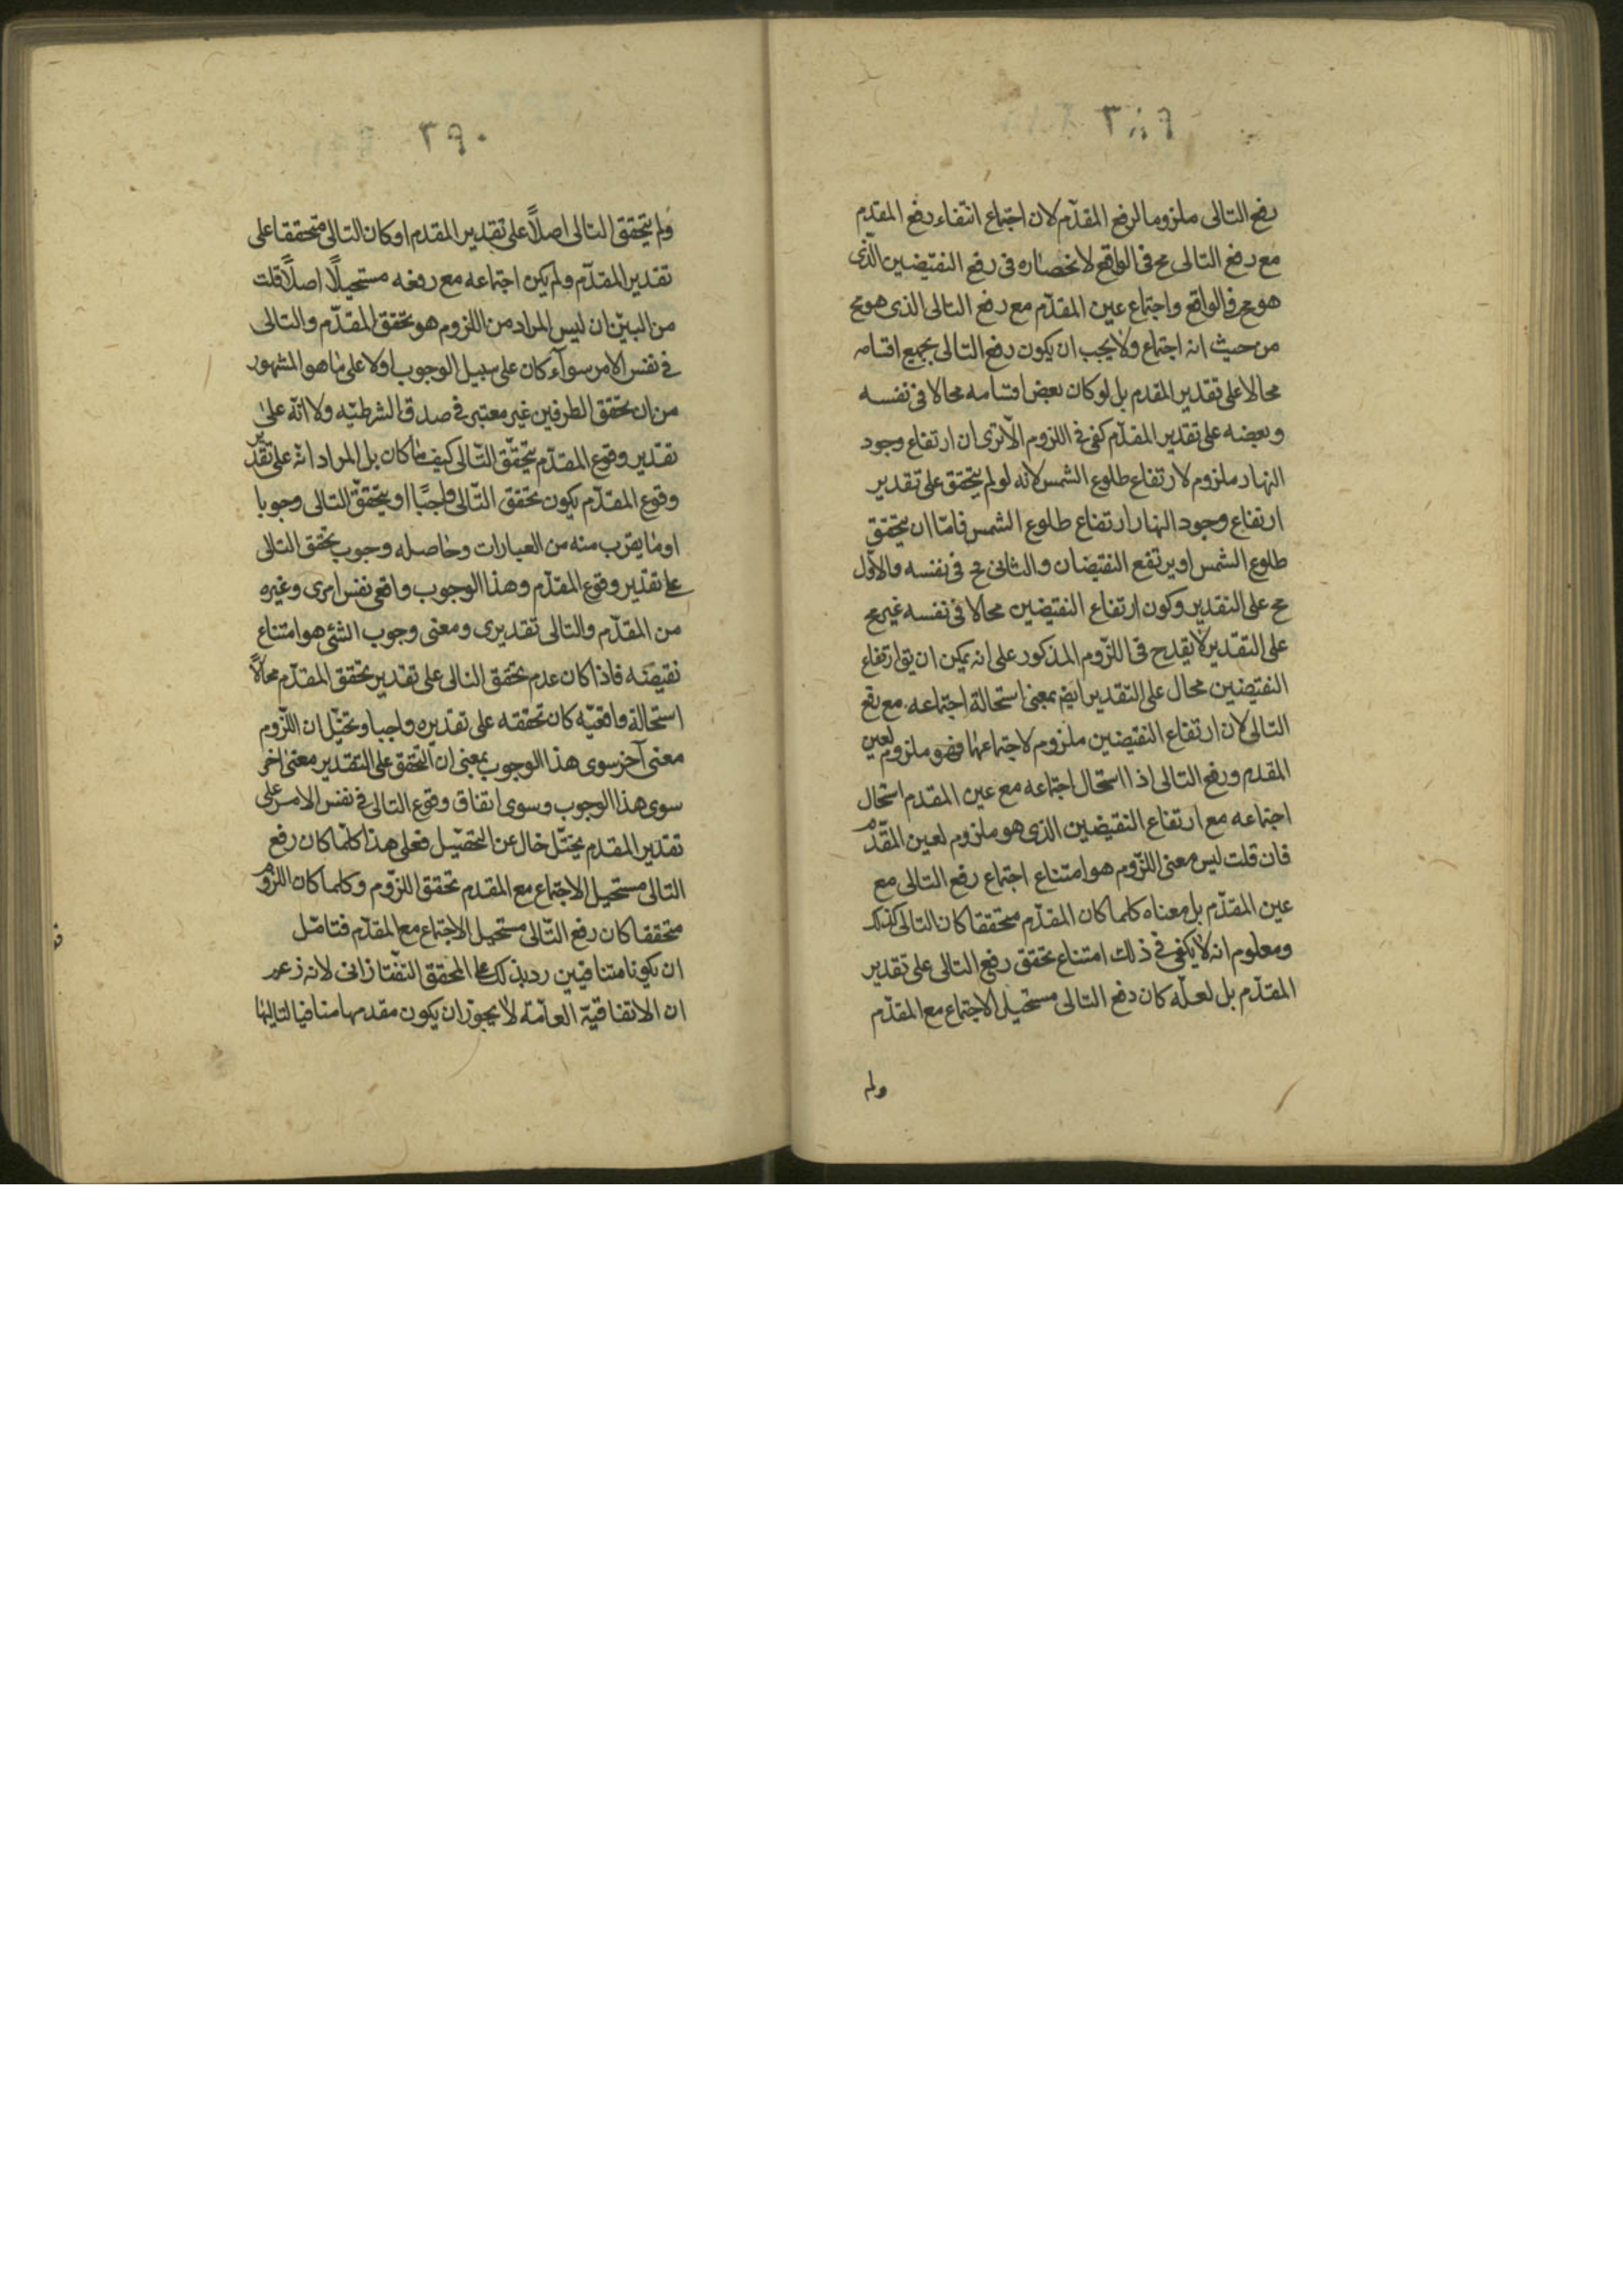 ٣٨٩
رفع التالى ملزوما لرفع المقدّم لان اجتماع انتفاء رفع المقدم
مع رفع التالى مح فى الواقع لانحصاره فى رفع النقيضين الذى
هو مح فى الواقع واجتماع عين المقدّم مع رفع التالى الذى هو مح
من حيث انه اجتماع ولا يجب ان يكون رفع التالى بجميع اقسامه
محالا على تقدير المقدم بل لو كان بعض اقسامه محالا فى نفسه
وبعضه على تقدير المقدّم كفى فى اللزوم الا ترى ان ارتفاع وجود
النهار ملزوم لارتفاع طلوع الشمس لانه لو لم يتحقق على تقدير
ارتفاع وجود النهار ارتفاع طلوع الشمس فامّا ان يتحقق
طلوع الشمس او يرتفع النقيضان والثانى مح فى نفسه والاوّل
مح على التقدير وكون ارتفاع النقيضين محالا فى نفسه غير مح
على التقدير لا يقدح فى اللزوم المذكور على انه يمكن ان يق ارتفاع
النقيضين محال على التقدير ايضا بمعنى استحالة اجتماعه مع رفع
التالى لان ارتفاع النقيضين ملزوم لاجتماعهما فهو ملزوم لعين
المقدم ورفع التالى اذا استحال اجتماعه مع عين المقدم استحال
اجتماعه مع ارتفاع النقيضين الذى هو ملزوم لعين المقدّم
فان قلت ليس معنى اللزوم هو امتناع اجتماع رفع التالى مع
عين المقدّم بل معناه كلما كان المقدّم متحققا كان التالى كذلك
ومعلوم انه لا يكفى فى ذلك امتناع تحقق رفع التالى على تقدير
المقدّم بل لعلّه كان رفع التالى مستحيل الاجتماع مع المقدّم
ولم
٣٩٠
ولم يتحقق التالى اصلاً على تقدير المقدم او كان التالى متحققا على
تقدير المقدّم ولم يكن اجتماعه مع رفعه مستحيلاً اصلاً قلت
من البيّن ان ليس المراد من اللزوم هو تحقق المقدّم والتالى
فى نفس الامر سوآء كان على سبيل الوجوب او لا على ما هو المشهور
من ان تحقق الطرفين غير معتبر فى صدق الشرطيّه ولا انّه على
تقدير وقوع المقدّم يتحقّق التّالى كيف ما كان بل المراد انّه على تقدير
وقوع المقدّم يكون تحقق التّالى واجبًا او يتحقّق التالى وجوبا
او ما يقرب منه من العبارات وحاصله وجوب تحقق التالى
على تقدير وقوع المقدّم وهذا الوجوب واقعى نفس امرى وغيره
من المقدّم والتالى تقديرى ومعنى وجوب الشئ هو امتناع
نقيضه فاذا كان عدم تحقق التالى على تقدير تحقق المقدّم محالاً
استحالة واقعيّه كان تحققه على تقديره واجبا وتخيّل ان اللزوم
معنى آخر سوى هذا الوجوب بمعنى ان التحقق على التقدير معنى اخر
سوى هذا الوجوب وسوى اتفاق وقوع التالى فى نفس الامر على
تقدير المقدم تخيّل خال عن التحصيل فعلى هذا كلّما كان رفع
التالى مستحيل الاجتماع مع المقدم تحقق اللزوم وكلما كان اللزوم
متحققا كان رفع التّالى مستحيل الاجتماع مع المقدّم فتامّل
ان يكونا متنافيين رد بذلك على المحقق التفتازانى لانه زعم
ان الاتفاقيّة العامّة لا يجوز ان يكون مقدمها منافيا لتاليها